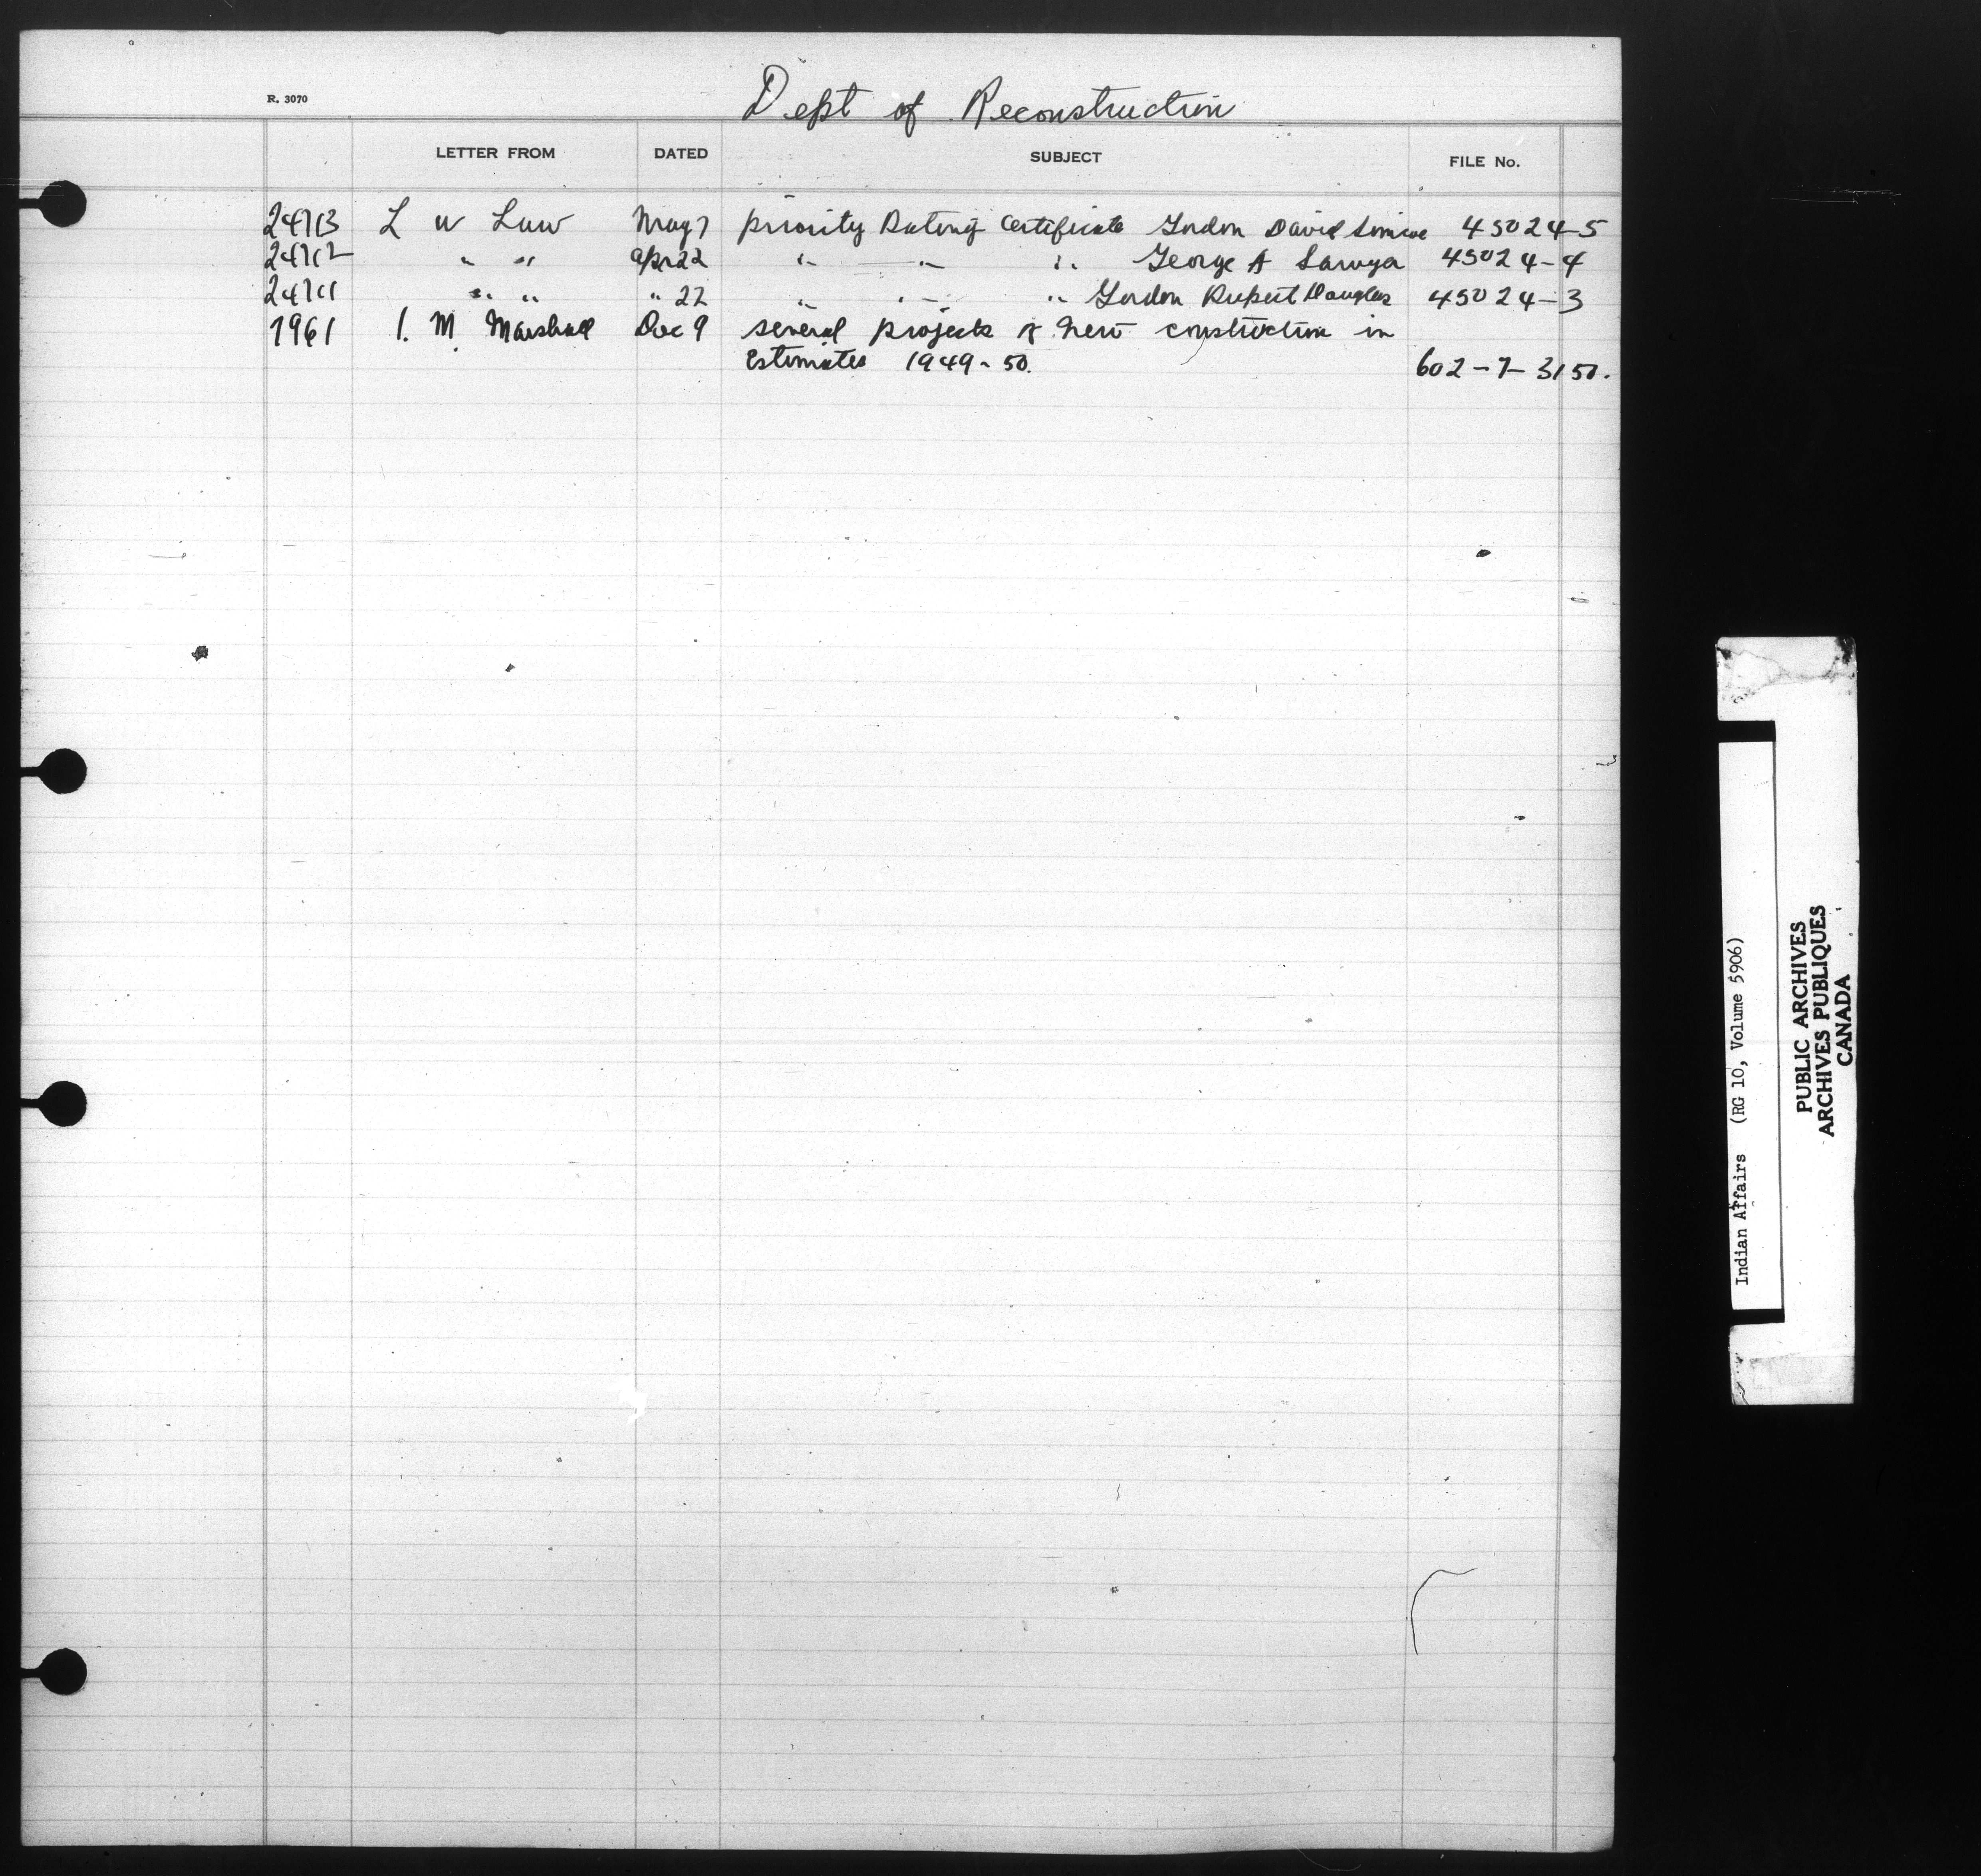 R. 3070
Dept of Reconstruction
LETTER FROM DATED SUBJECT FILE No.
24713 L W Law May 7 priority Rating Certificate Gordon David 45024-5
24712 " " apr 22 " " " George A Sawyer 45024-4
24711 " " " 22 " " " Gordon Rupert Douglas 45024-3
7961 I. M. Marshall Dec 9 several projects of new construction in
Estimates 1949-50. 602-7-3150.
Indian Affairs (RG 10, Volume 5906)
PUBLIC ARCHIVES
ARCHIVES PUBLIQUES
CANADA